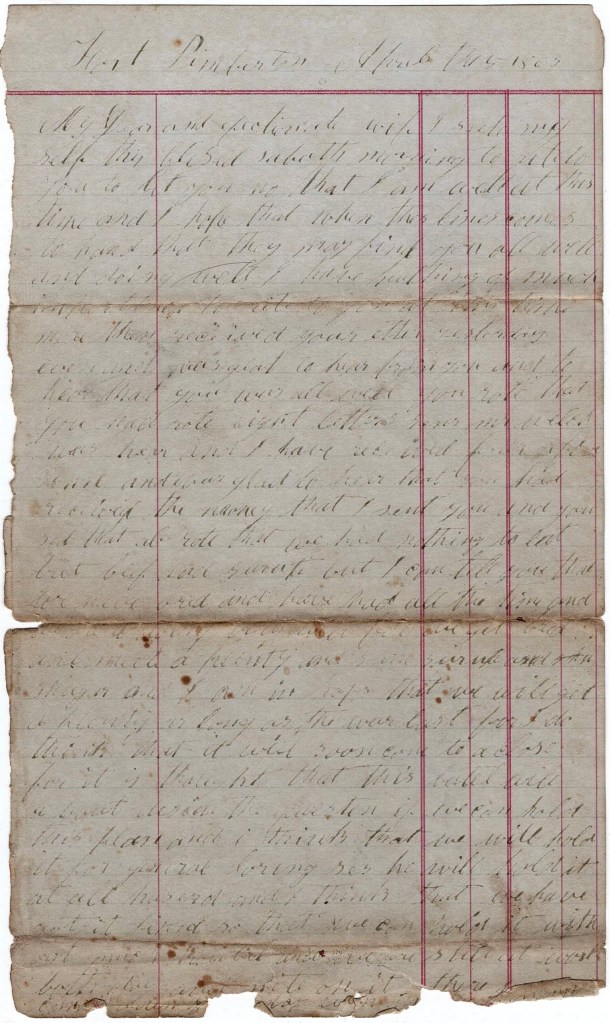 Fort Pimberton April the 5 1863
My Dear and afectionate wife I seete my
self this blesed sabath morning to rite to
you to let you no that I am well at this
time and I hope that when thes lines comes
to hand that they may find you all well
and doing well I have nothing of much
importance to rite to you at this time
more than received your letter yesterday
evening and was glad to hear from you and to
hear that you was all well you rote that
you had rote eight letters since
was hear and I have received four
and was glad to hear that you had
received the money that I sent you and you
sed that al rote that we had nothing to eat
but beef and but I can tell you that
we have bred and have had all the time and
we get
and meete a plenty and some sirup and some
shuger and I am in hops that we will get
a plenty as long as the war last for I do
think that it will soon come to a close
for it is thought that this batel will
a bout deside the question if we can hold
this place and i think that we will hold
it for general loring ses he will hold it
at all hazard and I think that we have
got it fixed so that we can hold it with
out much trouble and we are still at work
both day and nite on it there